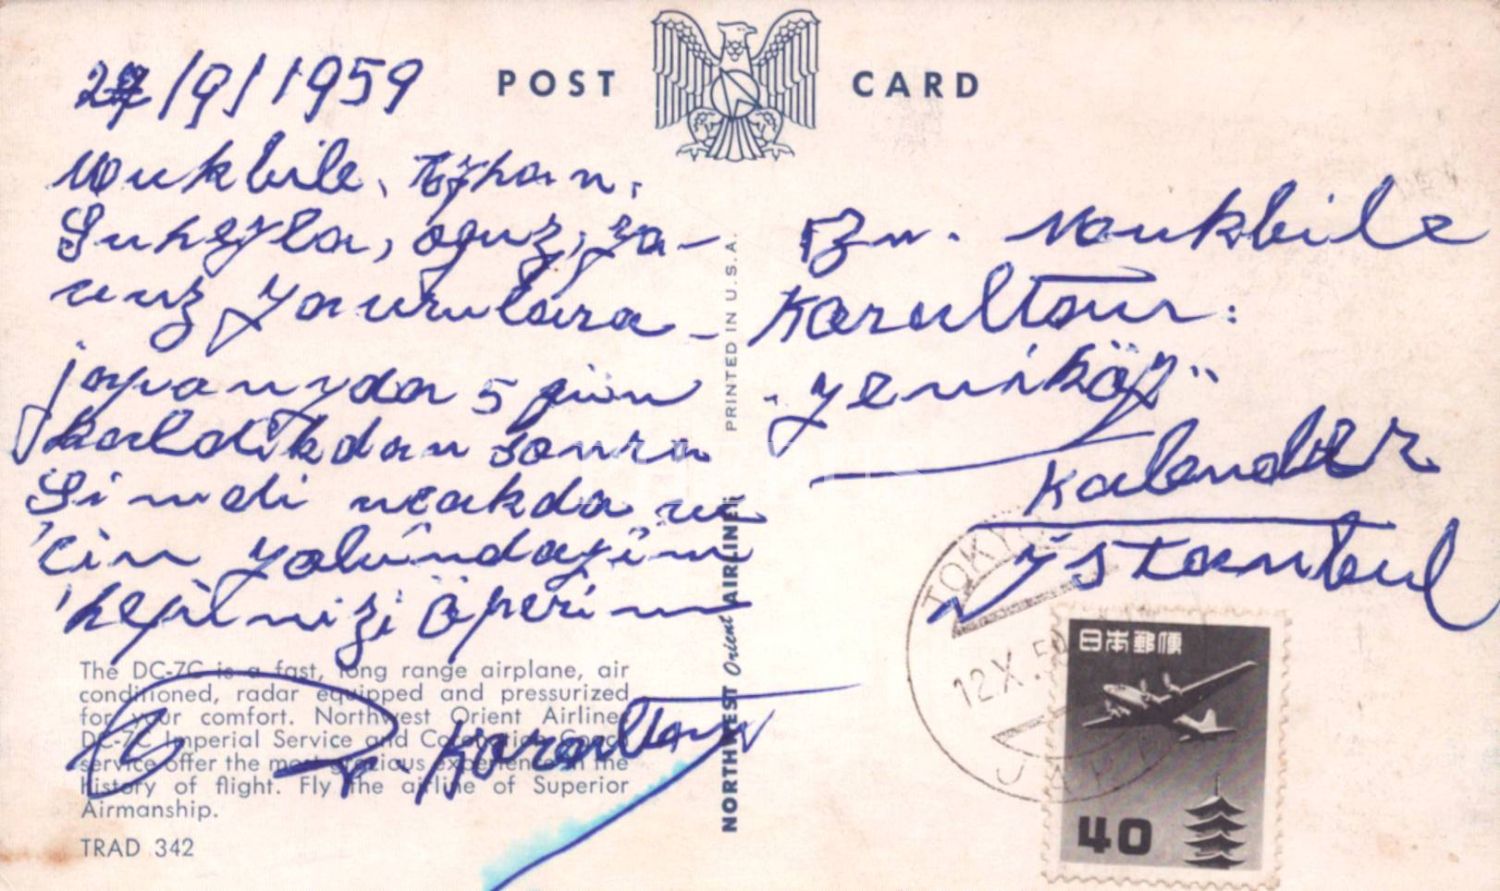 POST CARD
/9/1959
Mukbile, Ayhan,
Suheyla, oguz, ya-
vuz, yavrulara -
japanyda 5 gün
kaldikdan sonra
Simdi ucakda ve
yolundayim
hepinizi öperim
Karaultay
Bn. Mukbile
:
"yeniköy"
Kalender
ystanbul
PRINTED IN U.S.A.
NORTHWEST Orient AIRLINES
The DC-7C is a fast, long range airplane, air
conditioned, radar equipped and pressurized
for your comfort. Northwest Orient Airlines
DC-7C Imperial Service and Coach
service offer the most gracious experience in the
history of flight. Fly the airline of Superior
Airmanship.
TRAD 342
TOKYO
12.X.59
JAPAN
日本郵便
40